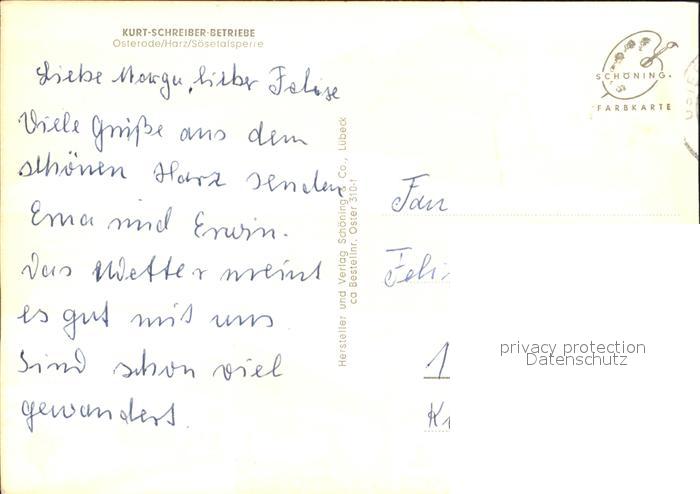 KURT-SCHREIBER-BETRIEBE
Osterode/Harz/Sösetalsperre
Liebe lieber
Viele Grüße aus dem
schönen Harz senden
Erna und Erwin.
Das Wetter meint
es gut mit uns
Sind schon viel
gewandert.
Hersteller und Verlag Schöning & Co., Lübeck
ca Bestellnr. Oster 310-1
SCHÖNING
FARBKARTE
Fam
Feli
1
Kr
privacy protection
Datenschutz